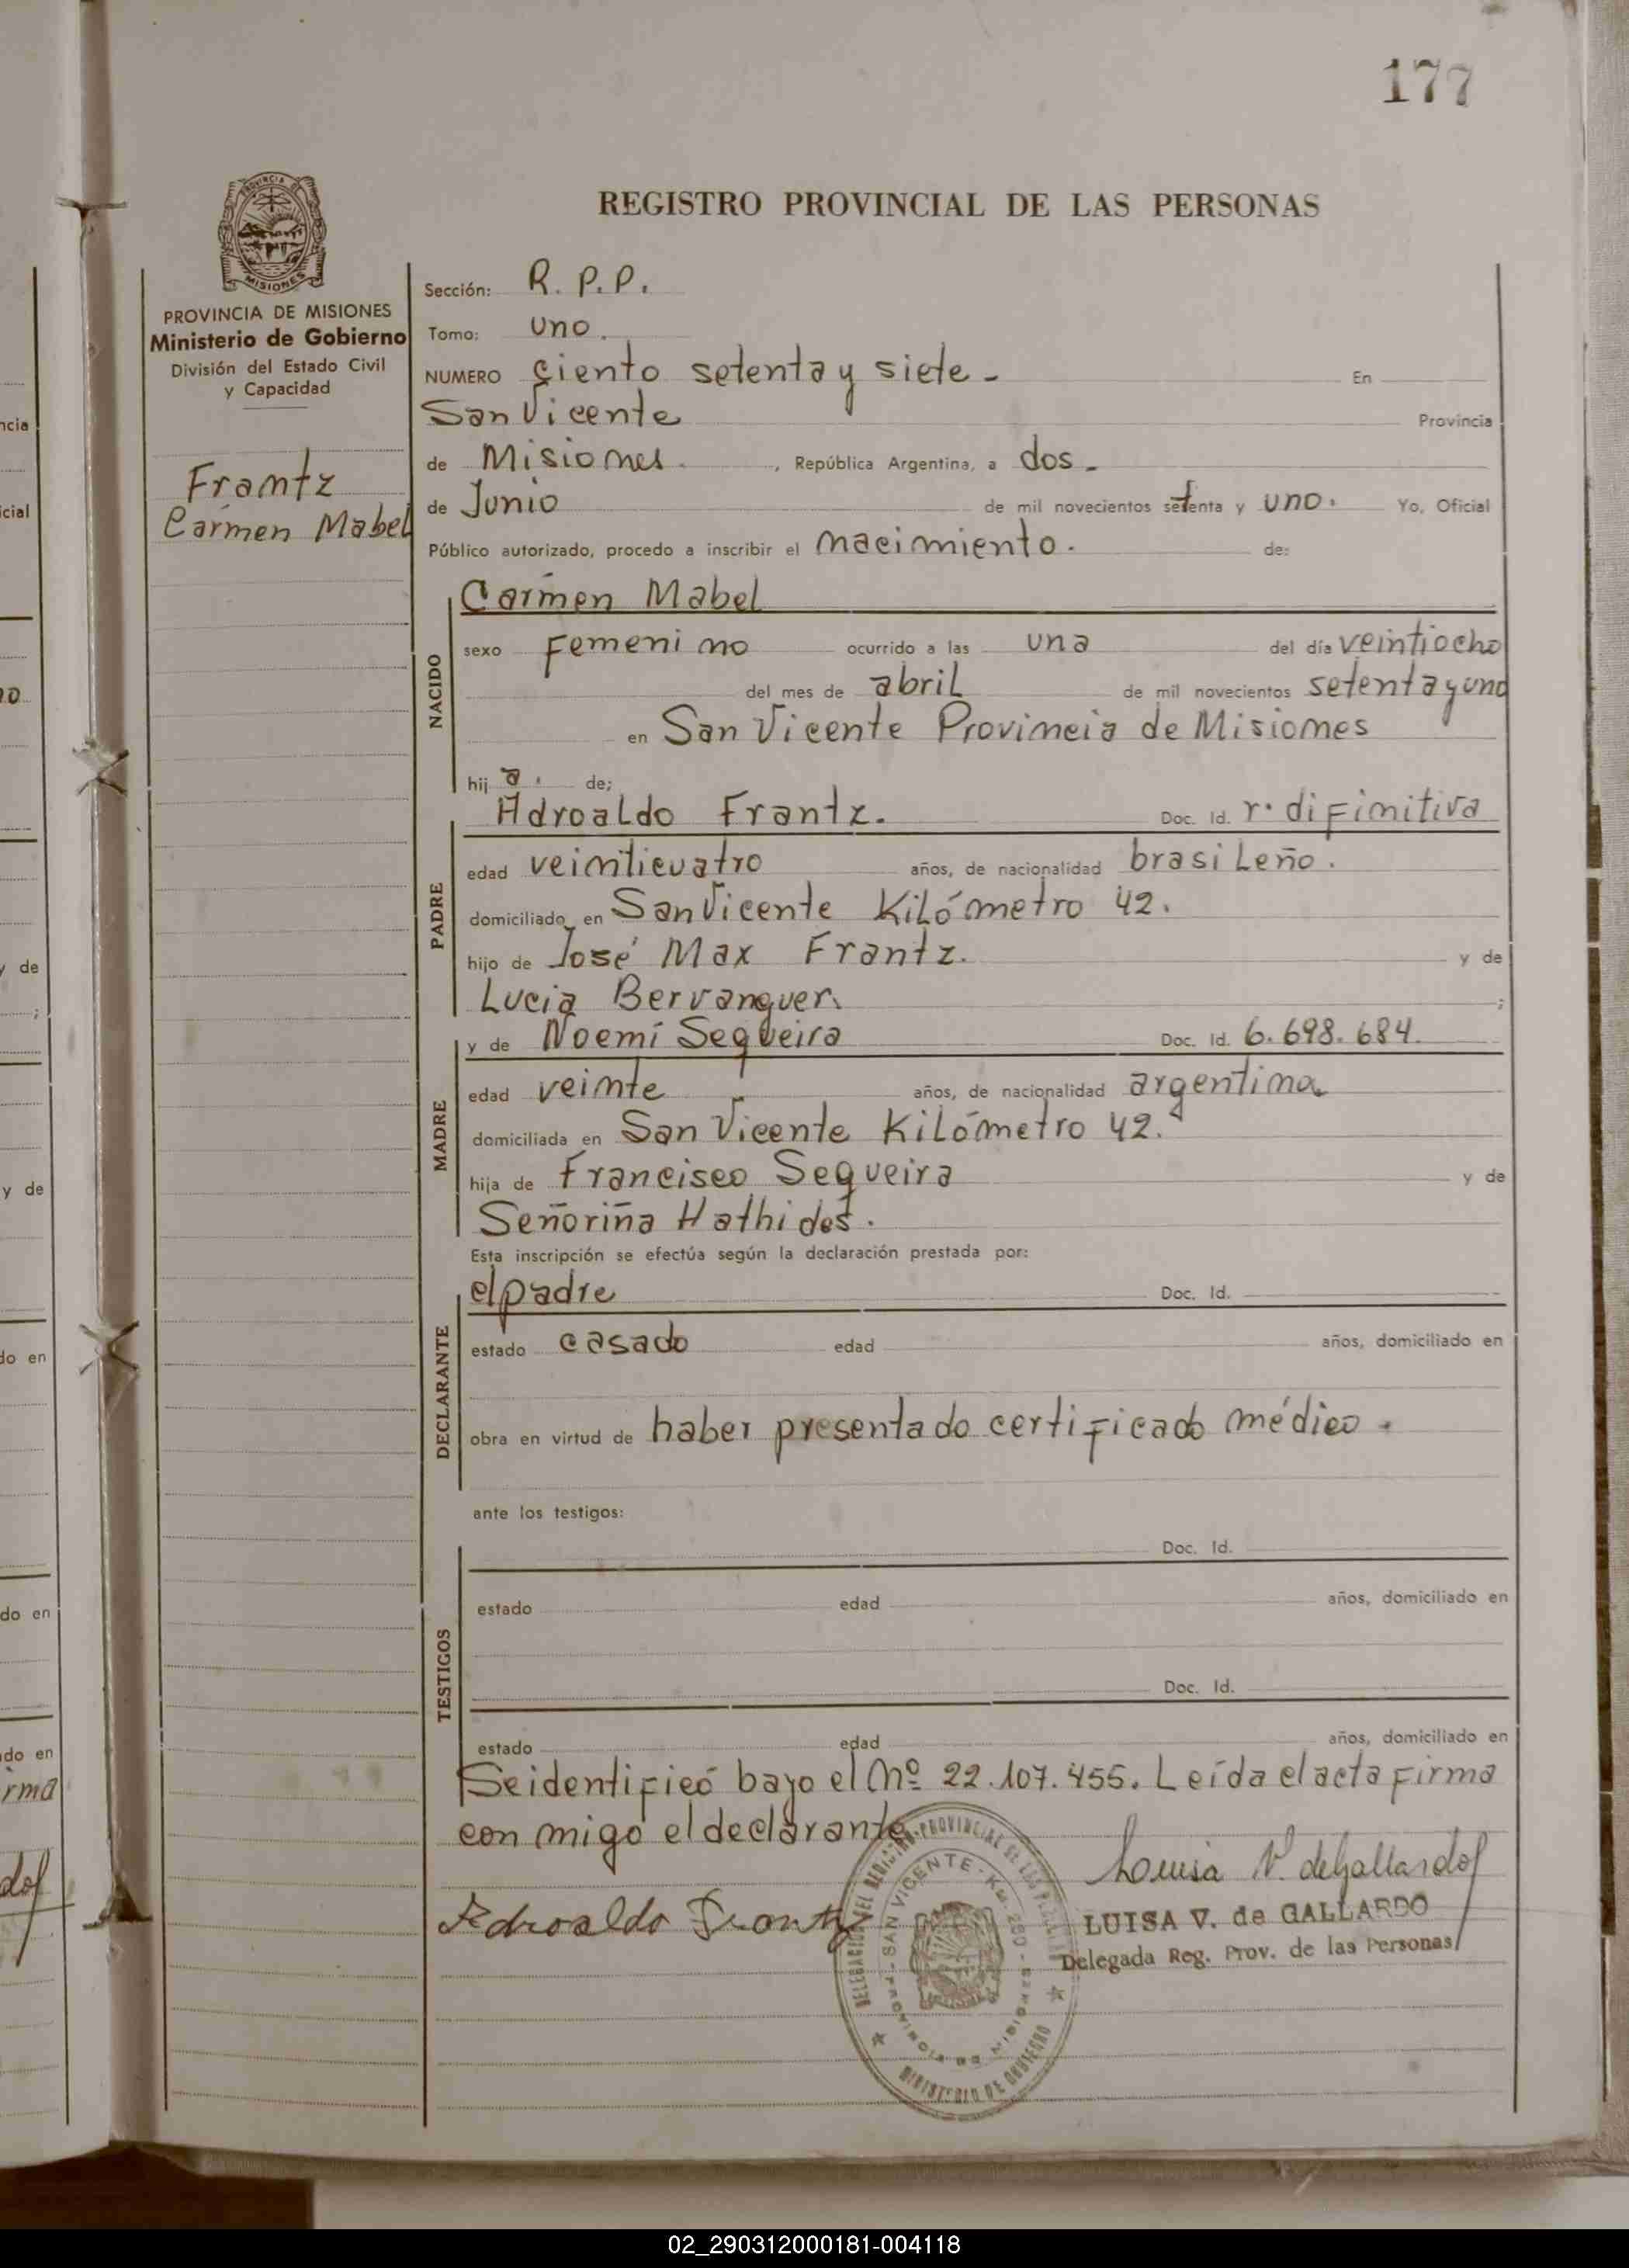 177
REGISTRO PROVINCIAL DE LAS PERSONAS
PROVINCIA DE MISIONES
PROVINCIA DE MISIONES
Ministerio de Gobierno
División del Estado Civil
y Capacidad
Frantz
Carmen Mabel
Sección: R. P. P.
Tomo: uno.
NUMERO ciento setenta y siete - En
San Vicente Provincia
de Misiones. , República Argentina, a dos -
de Junio de mil novecientos setenta y uno. Yo, Oficial
Público autorizado, procedo a inscribir el nacimiento. de:
NACIDO
Carmen Mabel
sexo Femenino ocurrido a las una del día veintiocho
del mes de abril de mil novecientos setenta y uno
en San Vicente Provincia de Misiones
hij a. de;
PADRE
Adroaldo Frantz. Doc. Id. r. difinitiva
edad veinticuatro años, de nacionalidad brasileño.
domiciliado en San Vicente Kilómetro 42.
hijo de José Max Frantz. y de
Lucia Bervanguer. ;
MADRE
y de Noemí Seqveira Doc. Id. 6.698.684.
edad veinte años, de nacionalidad argentina
domiciliada en San Vicente Kilómetro 42.
hija de Francisco Seqveira y de
Señoriña Hathides.
Esta inscripción se efectúa según la declaración prestada por:
DECLARANTE
el padre Doc. Id.
estado casado edad años, domiciliado en
obra en virtud de haber presentado certificado médico.
ante los testigos:
TESTIGOS
Doc. Id.
estado edad años, domiciliado en
Doc. Id.
estado edad años, domiciliado en
Se identificó bajo el Nº 22.107.455. Leída el acta firma
con migo el declarante.
Adroaldo Frantz
Luisa V. de Gallardo
LUISA V. de GALLARDO
Delegada Reg. Prov. de las Personas
DELEGACION DEL REGISTRO PROVINCIAL DE LAS PERSONAS
SAN VICENTE - Km. 290 - PROVINCIA DE MISIONES
MINISTERIO DE GOBIERNO
ncia
icial
y de
;
y de
do en
do en
do en
irma
02_290312000181-004118